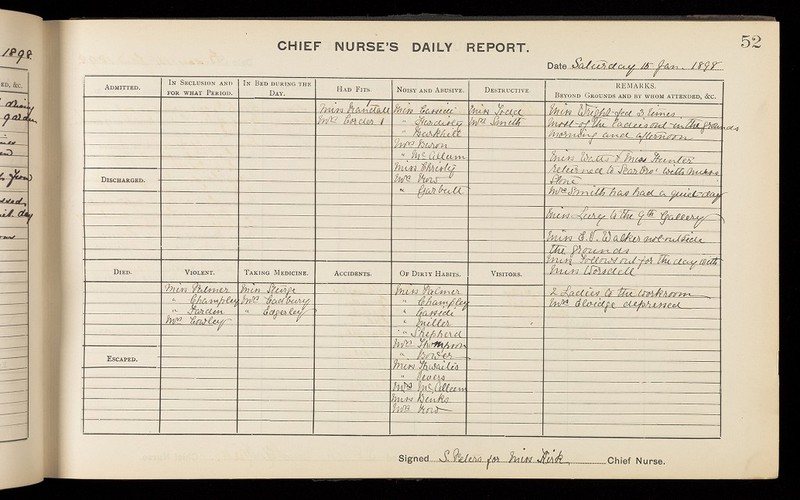 1898
CHIEF NURSE'S DAILY REPORT.
52
Date Saturday 15 Jan. 1898
ADMITTED.
IN SECLUSION AND FOR WHAT PERIOD.
IN BED DURING THE DAY.
HAD FITS.
NOISY AND ABUSIVE.
DESTRUCTIVE
REMARKS.
BEYOND GROUNDS AND BY WHOM ATTENDED, &c.
Miss Randall
Mrs Corder 1
Miss Cassidi
" Burkhill
Mrs Baron
" McCallum
Miss Christy
Mrs Row
" Garbutt
Miss Todd
Mrs Smith
Miss Wright fed 3 times.
most of the Ladies out in the grounds
morning and afternoon
Miss Hunter
returned to Scarbro' with nurse
Stone
Mrs Smith has had a quiet day
Miss Lury to the 9th Gallery
Miss E. V. Walker not outside
the grounds
out for the day with
Miss Worsdell
DISCHARGED.
DIED.
VIOLENT.
TAKING MEDICINE.
ACCIDENTS.
OF DIRTY HABITS.
VISITORS.
Miss Palmer
" Champley
" Jarden
Mrs Cowley
Miss Sturge
Mrs Cadbury
" Edgerley
Miss Palmer
" Champley
" Cassidi
" Miller
" Shepherd
Mrs Thompson
Miss Thwaites
" Nevers
Mrs McCallum
Miss Benks
Mrs Row
2 Ladies to the workroom
Mrs Eloidge depressed
ESCAPED.
Signed S. Peters for Miss Kirk Chief Nurse.